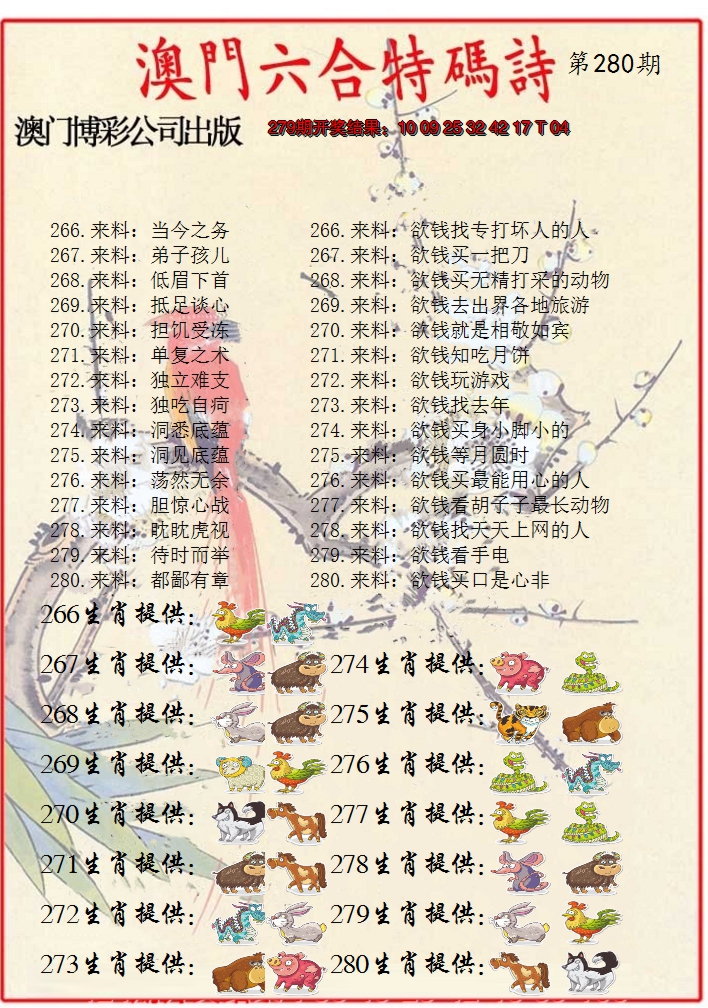 澳門六合特碼詩 第280期
澳门博彩公司出版 279期开奖结果：10 09 25 32 42 17 T 04
266.来料：当今之务 266.来料：欲钱找专打坏人的人
267.来料：弟子孩儿 267.来料：欲钱买一把刀
268.来料：低眉下首 268.来料：欲钱买无精打采的动物
269.来料：抵足谈心 269.来料：欲钱去出界各地旅游
270.来料：担饥受冻 270.来料：欲钱就是相敬如宾
271.来料：单复之术 271.来料：欲钱知吃月饼
272.来料：独立难支 272.来料：欲钱玩游戏
273.来料：独吃自疴 273.来料：欲钱找去年
274.来料：洞悉底蕴 274.来料：欲钱买身小脚小的
275.来料：洞见底蕴 275.来料：欲钱等月圆时
276.来料：荡然无余 276.来料：欲钱买最能用心的人
277.来料：胆惊心战 277.来料：欲钱看胡子子最长动物
278.来料：眈眈虎视 278.来料：欲钱找天天上网的人
279.来料：待时而举 279.来料：欲钱看手电
280.来料：都鄙有章 280.来料：欲钱买口是心非
266生肖提供：
267生肖提供： 274生肖提供：
268生肖提供： 275生肖提供：
269生肖提供： 276生肖提供：
270生肖提供： 277生肖提供：
271生肖提供： 278生肖提供：
272生肖提供： 279生肖提供：
273生肖提供： 280生肖提供：